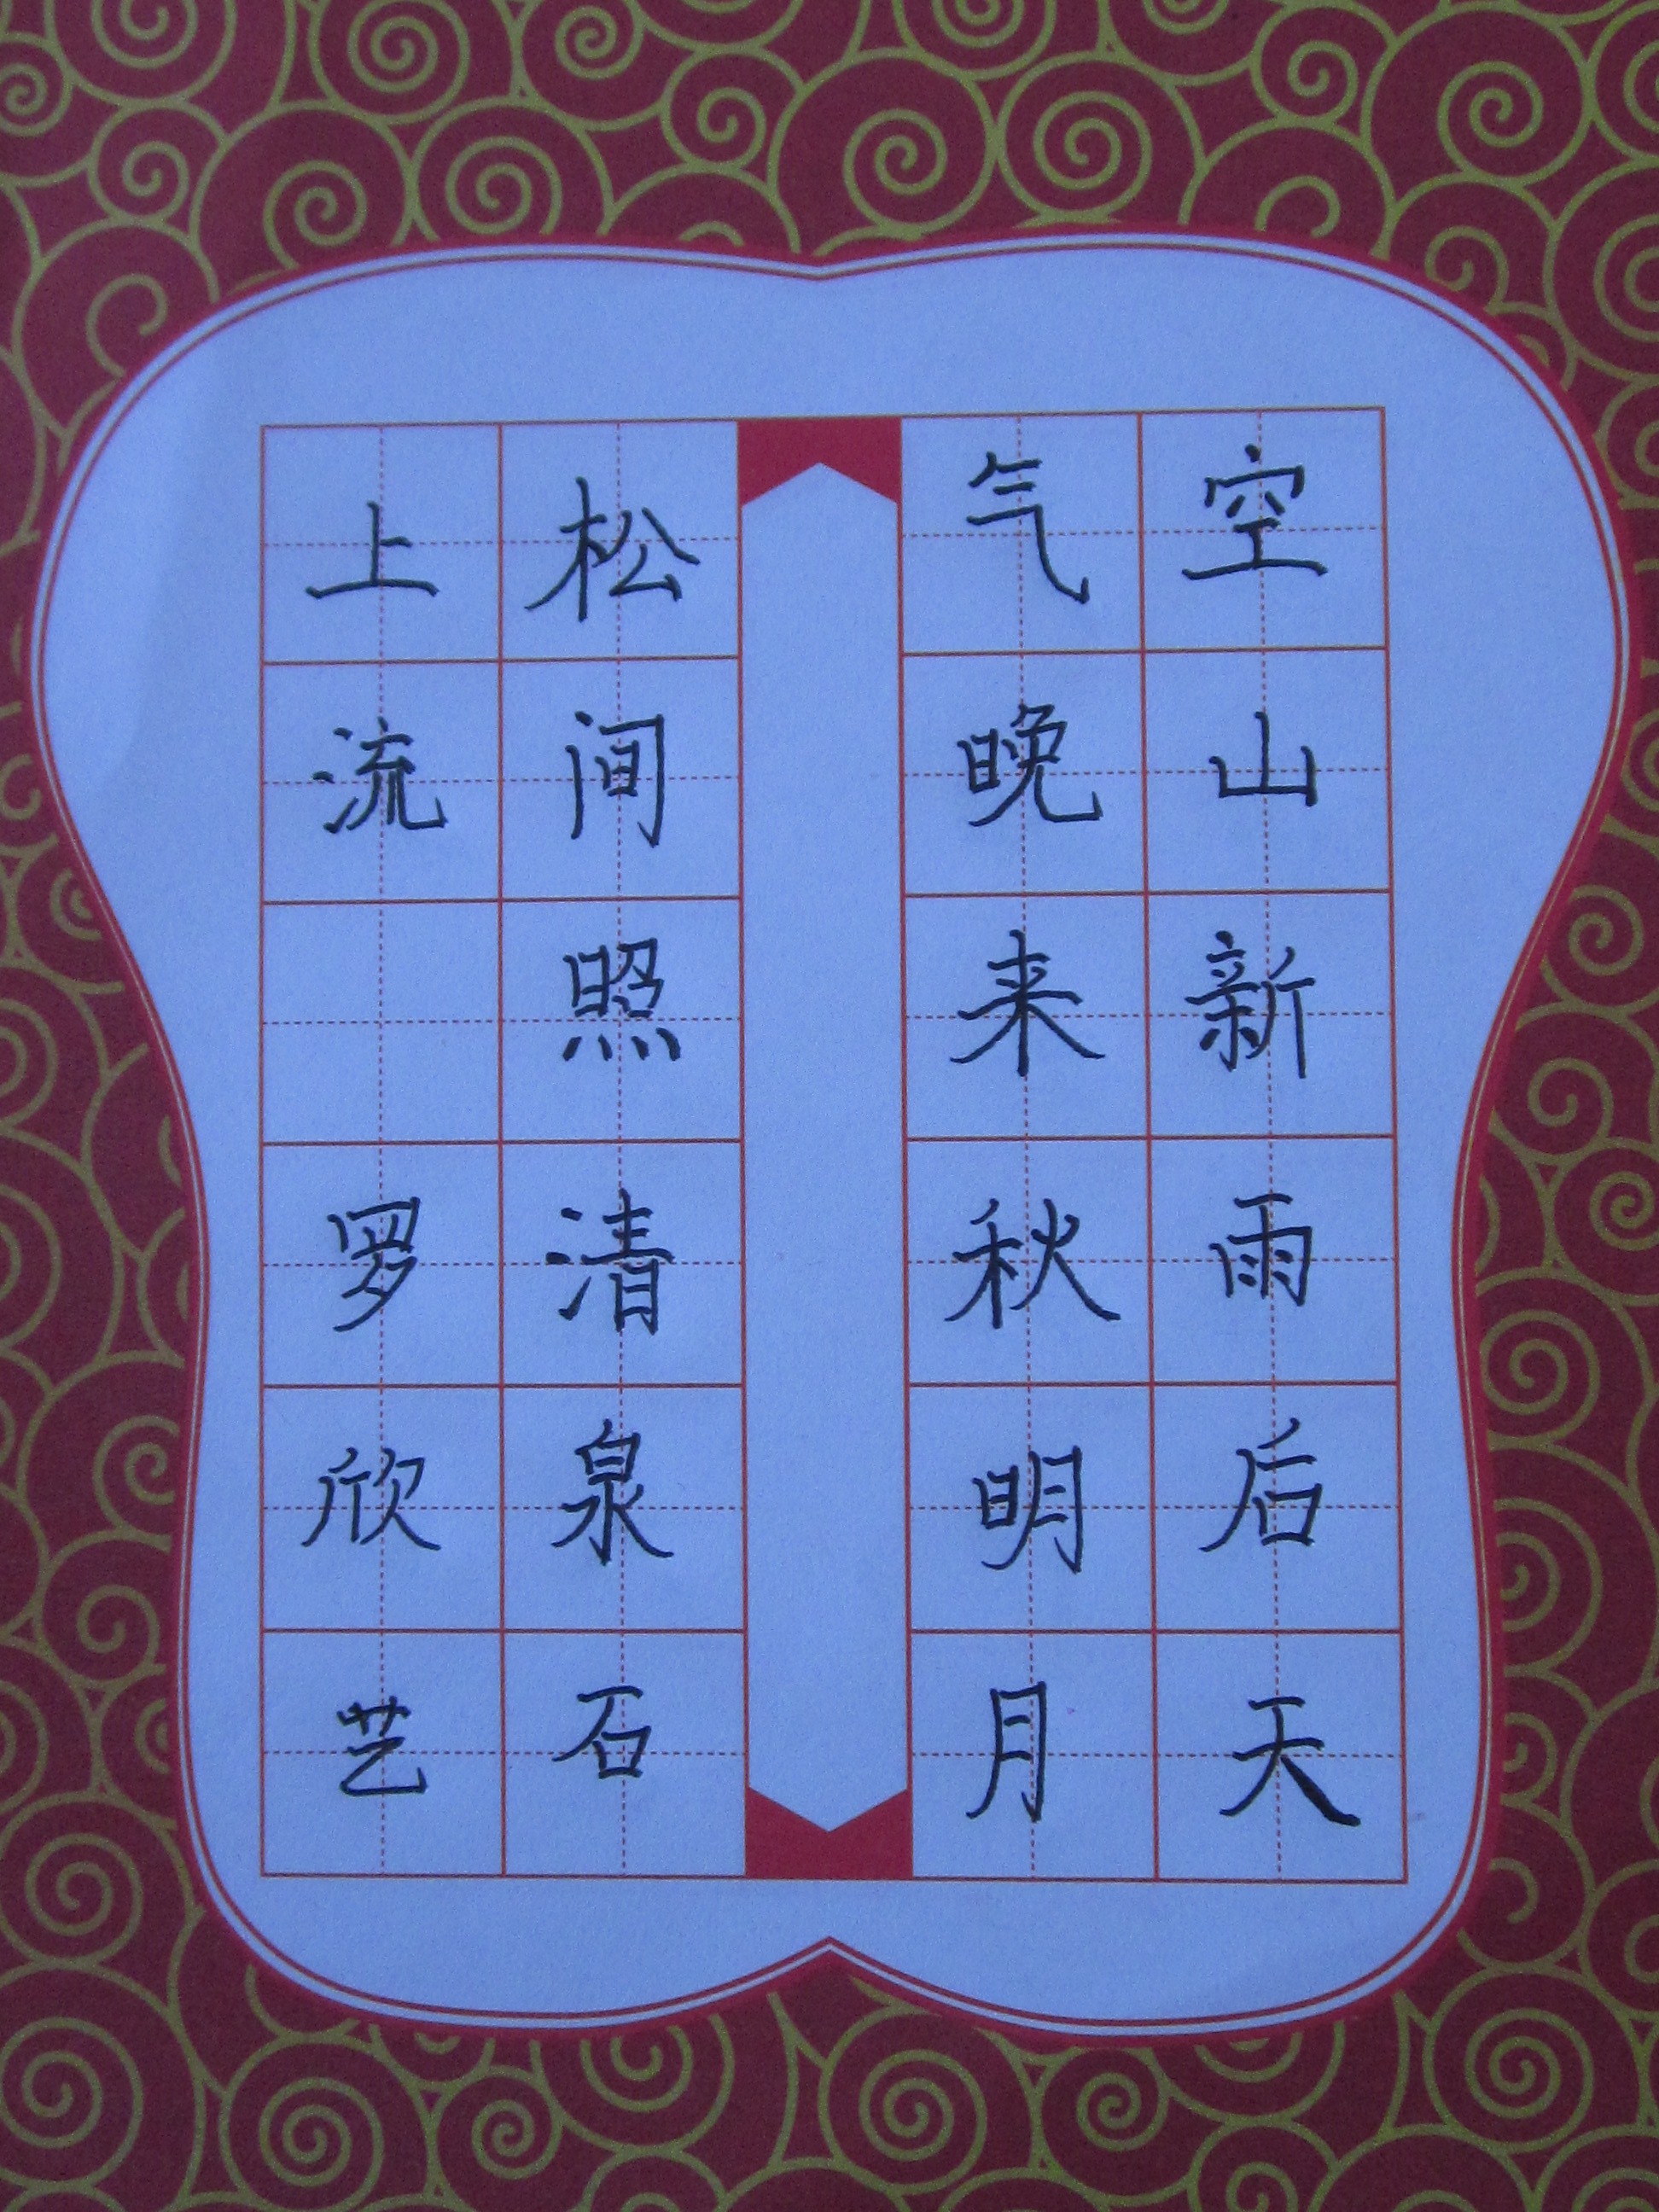 空山新雨后天
气晚来秋明月
松间照清泉石
上流 罗欣艺